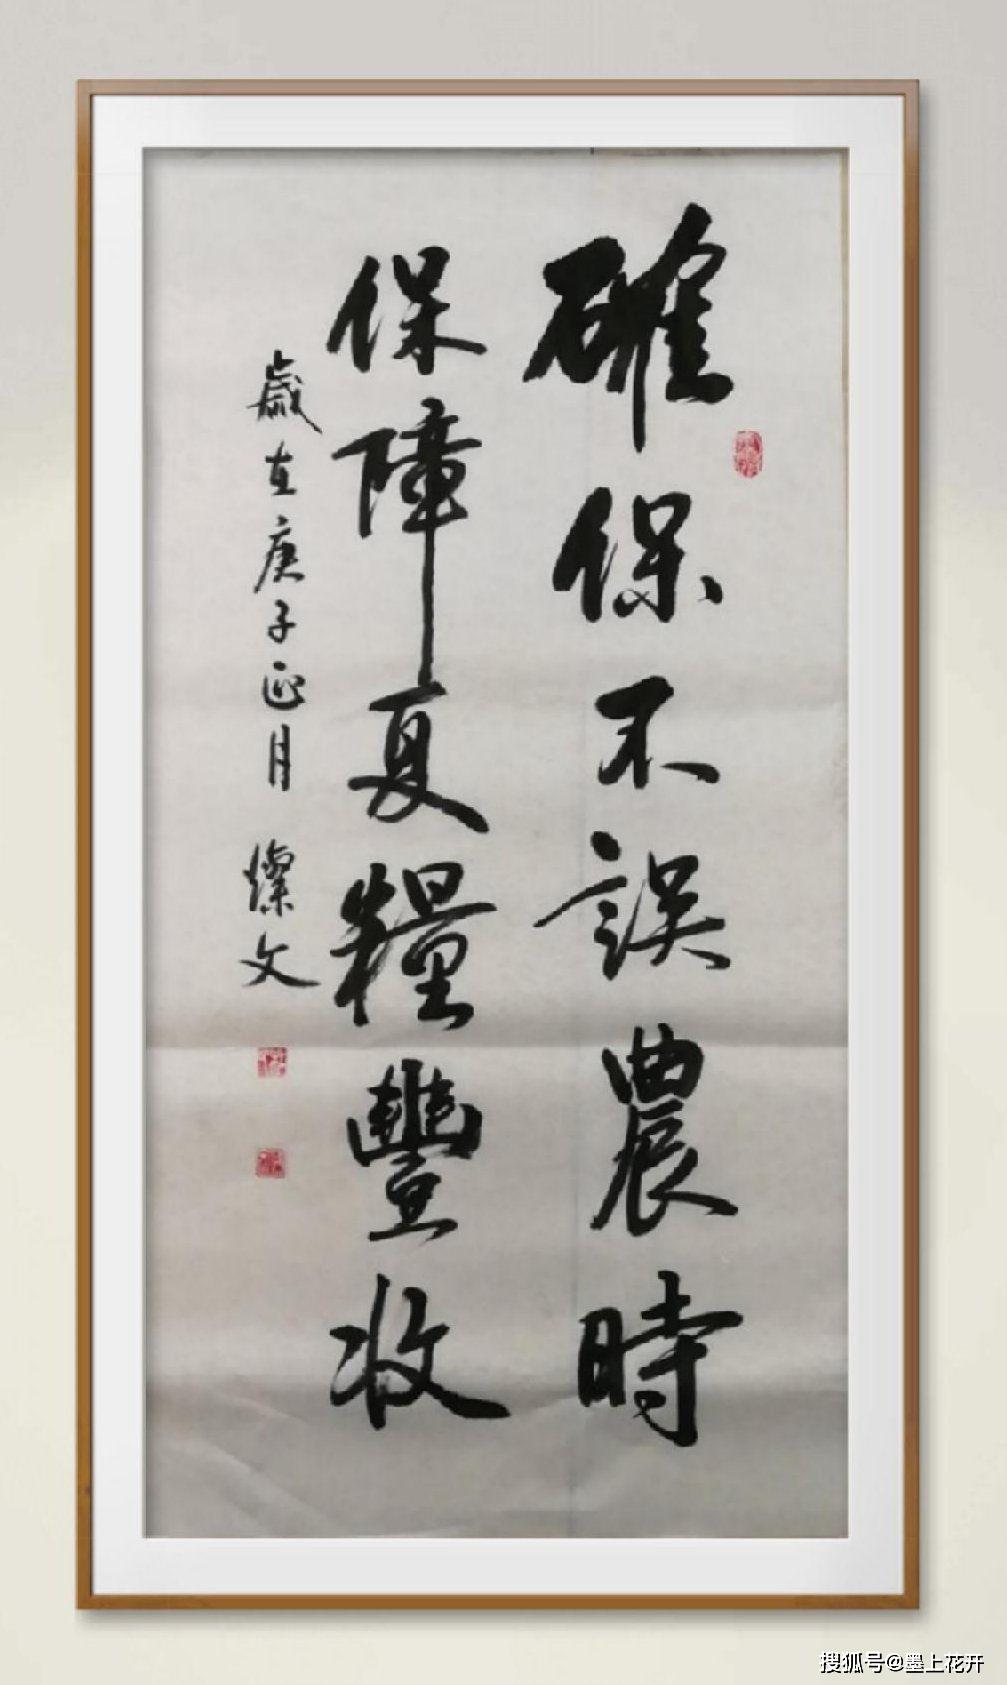 確保不誤農時
保障夏糧豐收
歲在庚子正月 燦文
搜狐号@墨上花开